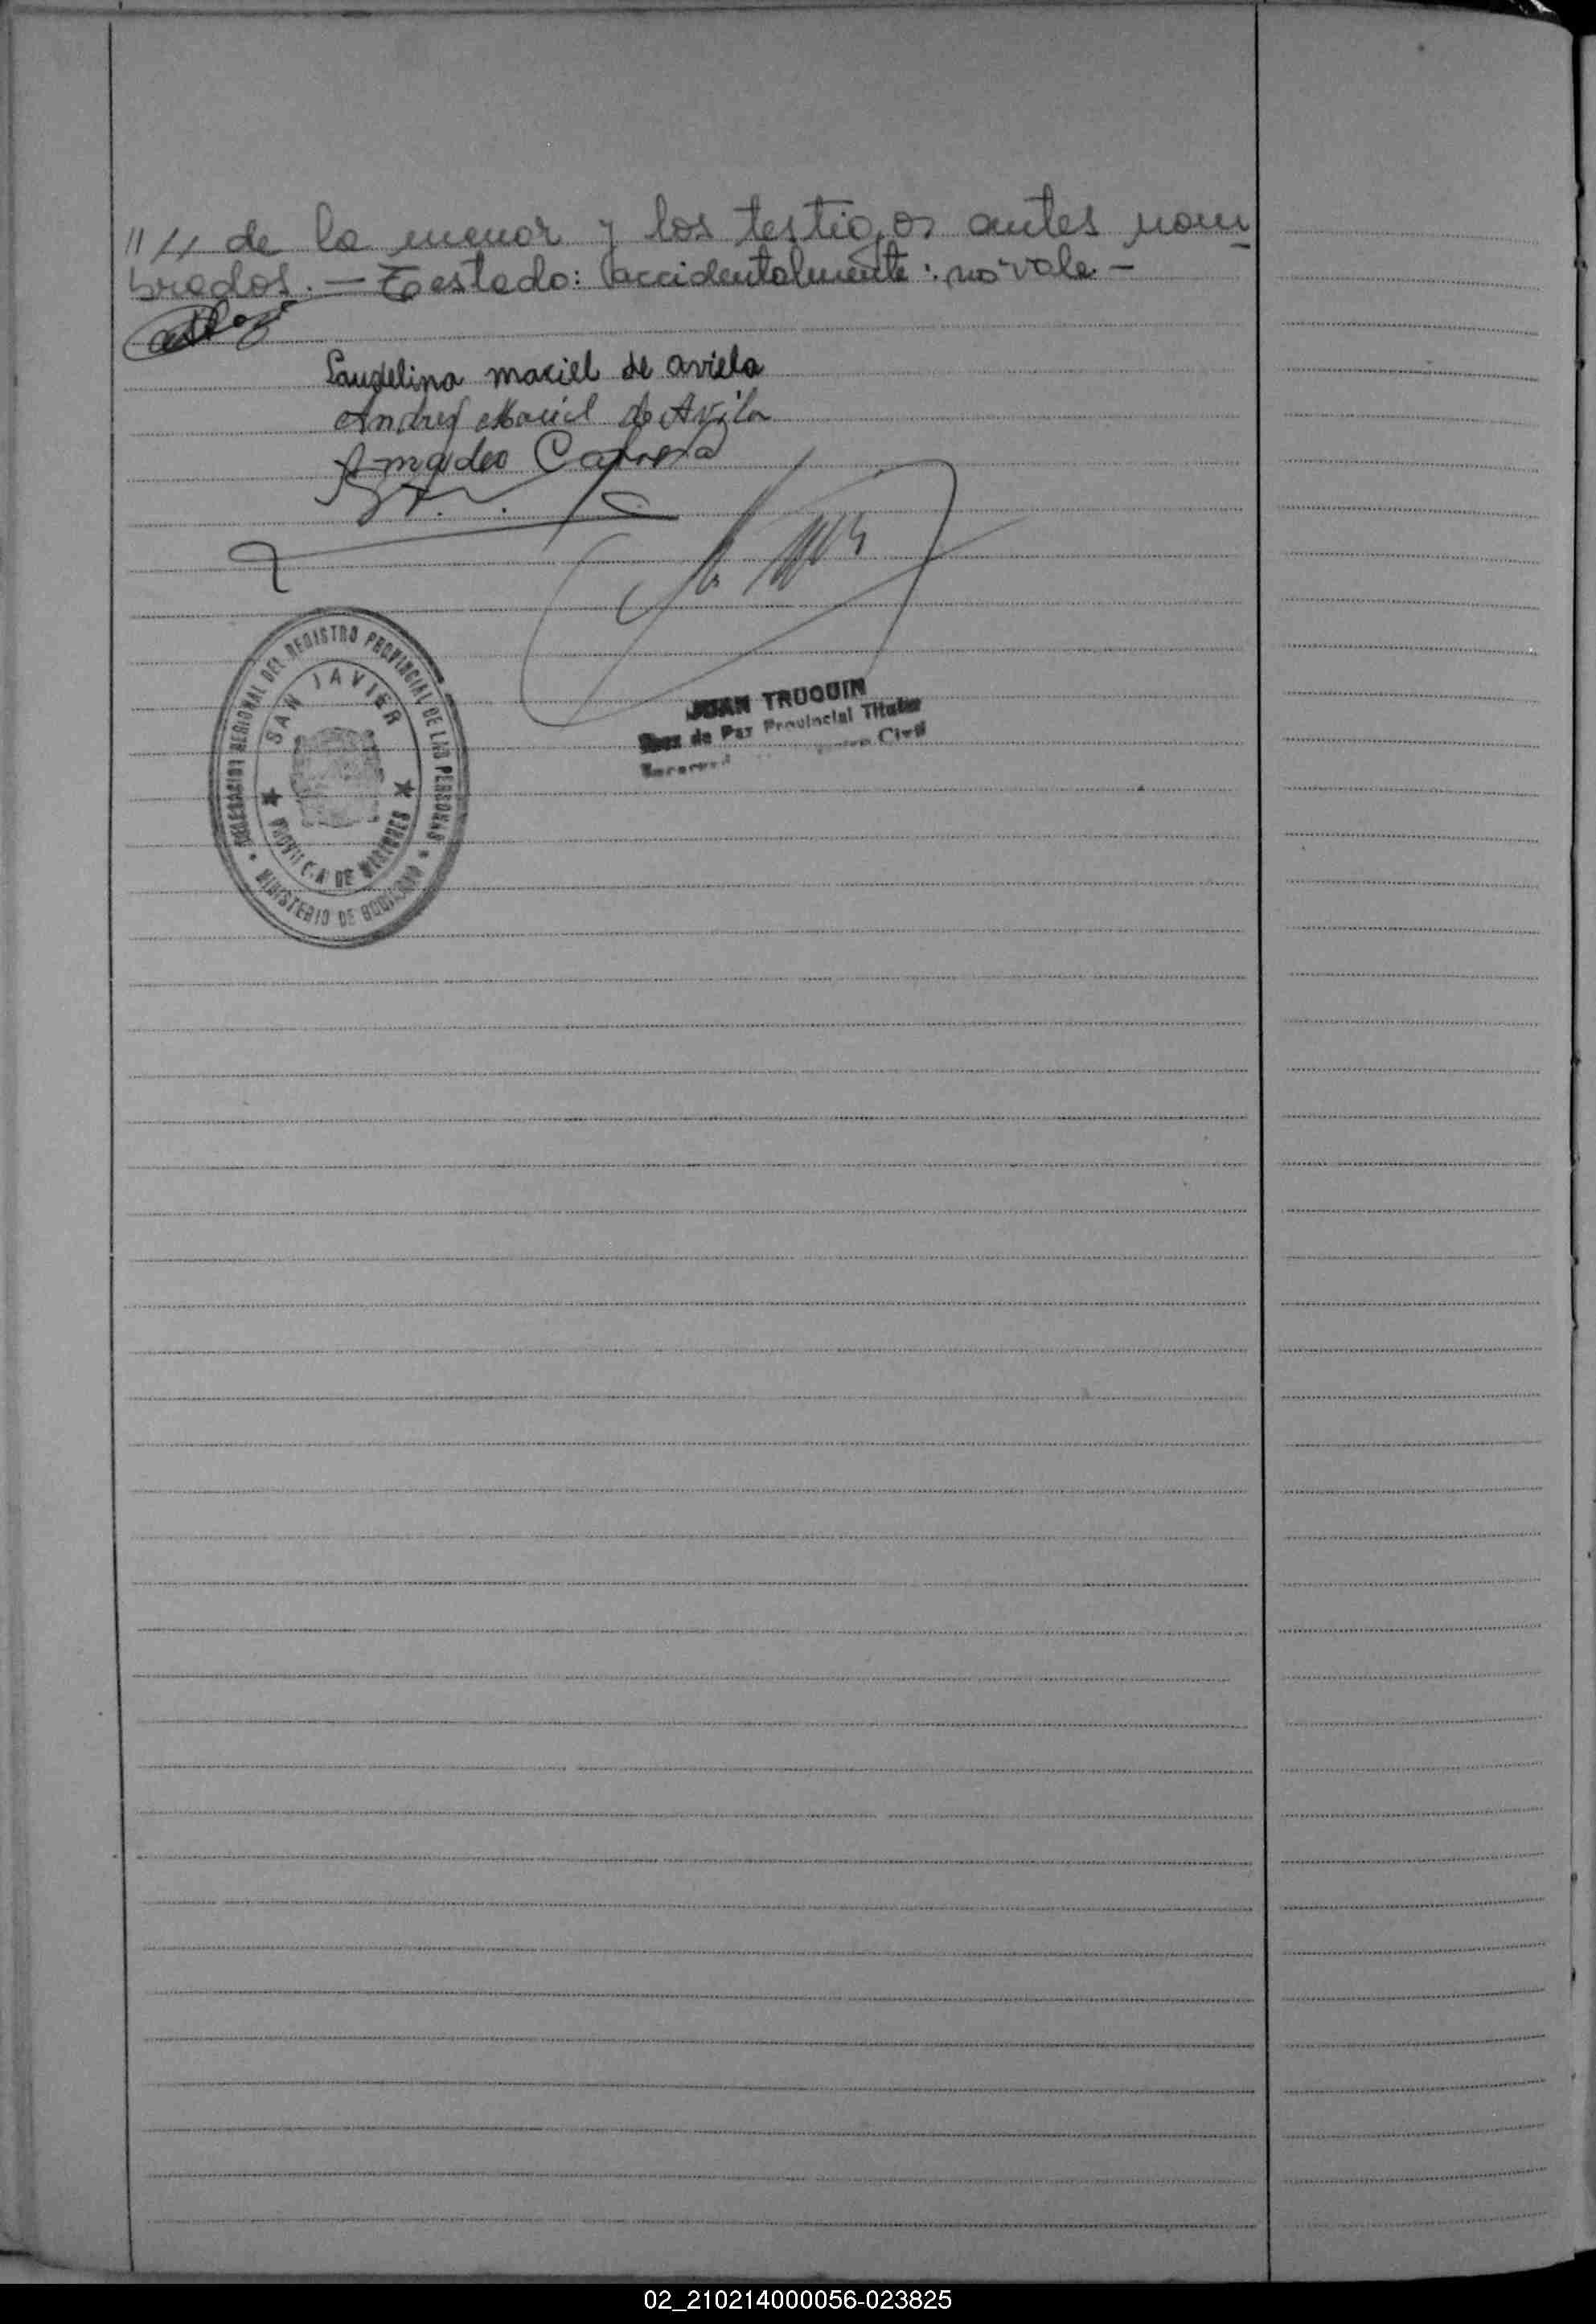 //// de la menor y los testigos antes nom
brados. — Testado: accidentalmente: no vale —
Laudelina maciel de aviela
Andres Maciel de Avila
Amadeo Cabrera
DELEGACION REGIONAL DEL REGISTRO PROVINCIAL DE LAS PERSONAS
SAN JAVIER
PROVINCIA DE MISIONES
MINISTERIO DE GOBIERNO
JUAN TRUQUIN
Juez de Paz Provincial Titular
Civil
02_210214000056-023825